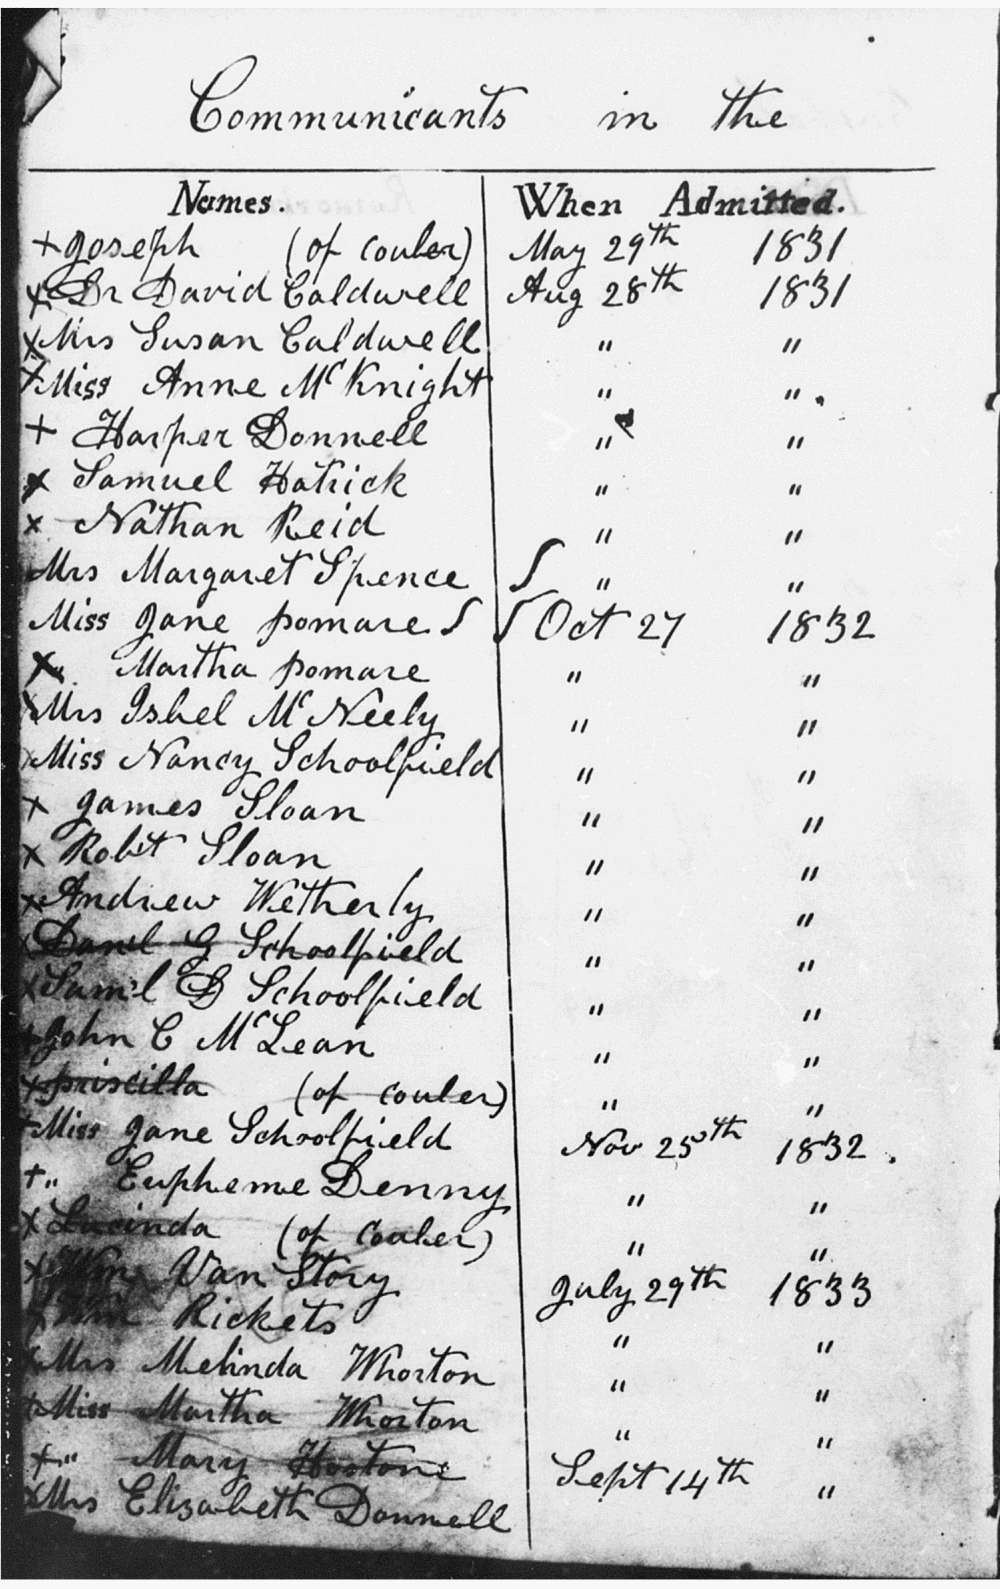 Communicants in the
Names. When Admitted.
+ Joseph (of couler) May 29th 1831
x Dr David Caldwell Aug 28th 1831
x Mrs Susan Caldwell " "
+ Miss Anne McKnight " "
+ Harper Donnell " "
x Samuel Hatrick " "
x Nathan Reid " "
Mrs Margaret Spence " "
Miss Jane pomare Oct 27 1832
x " Martha pomare " "
x Mrs Isbel McNeely " "
x Miss Nancy Schoolfield " "
+ James Sloan " "
x Robt Sloan " "
x Andrew Wetherly " "
Danl G Schoolfield " "
x Saml D Schoolfield " "
+ John C McLean " "
+ priscilla (of couler) " "
+ Miss Jane Schoolfield Nov 25th 1832.
+ " Eupheme Denny " "
x Lucinda (of couler) " "
x Wm Van Story July 29th 1833
x Wm Rickets " "
x Mrs Melinda Whorton " "
+ Miss Martha Whorton " "
+ " Mary Sept 14th "
x Mrs Elizabeth Donnell